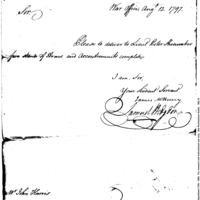 War Office Augt 12. 1797.
Sir,
Please to deliver to Lieut Peter Shoemaker
four stand of Arms and accoutrements complete.
I am Sir,
Your Obedient Servant
James McHenry
Samuel Hodgdon
Mr John Harris